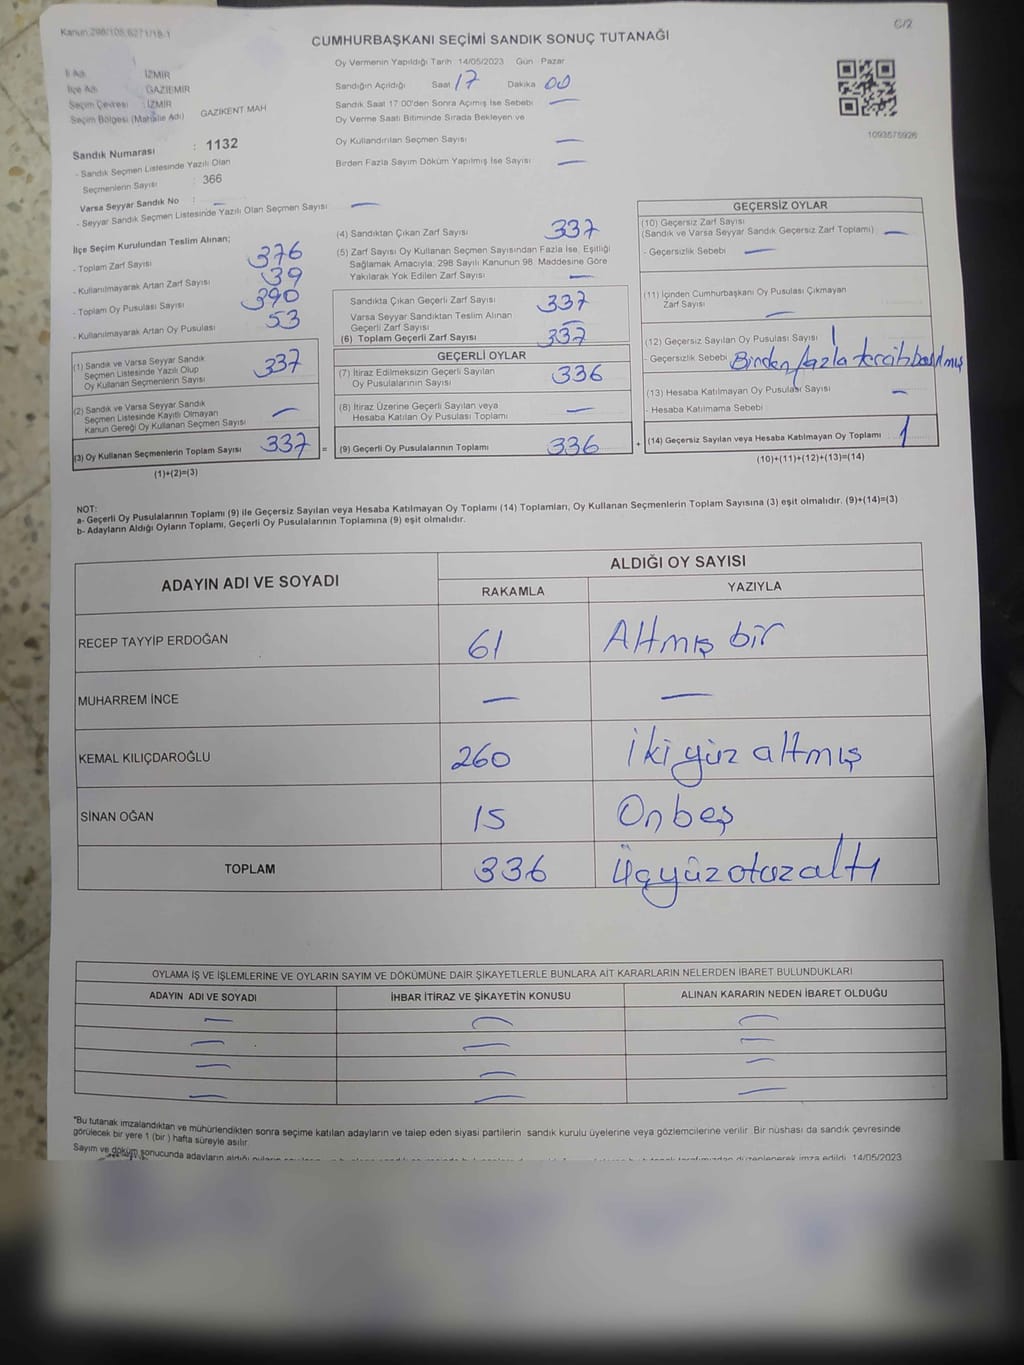 Kanun 298/105,6271/18-1
C/2
CUMHURBAŞKANI SEÇİMİ SANDIK SONUÇ TUTANAĞI
Oy Vermenin Yapıldığı Tarih 14/05/2023 Gün Pazar
İl Adı : İZMİR
Sandığın Açıldığı Saat 17 Dakika 00
İlçe Adı : GAZİEMİR
Sandık Saat 17:00'den Sonra Açımış İse Sebebi —
Seçim Çevresi : İZMİR
Oy Verme Saati Bitiminde Sırada Bekleyen ve
Seçim Bölgesi (Mahalle Adı) GAZİKENT MAH
Oy Kullandırılan Seçmen Sayısı —
1093575926
Sandık Numarası : 1132
Birden Fazla Sayım Döküm Yapılmış İse Sayısı —
- Sandık Seçmen Listesinde Yazılı Olan
Seçmenlerin Sayısı : 366
Varsa Seyyar Sandık No : —
- Seyyar Sandık Seçmen Listesinde Yazılı Olan Seçmen Sayısı —
İlçe Seçim Kurulundan Teslim Alınan;
- Toplam Zarf Sayısı 376
- Kullanılmayarak Artan Zarf Sayısı 39
- Toplam Oy Pusulası Sayısı 390
- Kullanılmayarak Artan Oy Pusulası 53
(1) Sandık ve Varsa Seyyar Sandık
Seçmen Listesinde Yazılı Olup
Oy Kullanan Seçmenlerin Sayısı 337
(2) Sandık ve Varsa Seyyar Sandık
Seçmen Listesinde Kayıtlı Olmayan
Kanun Gereği Oy Kullanan Seçmen Sayısı —
(3) Oy Kullanan Seçmenlerin Toplam Sayısı 337 =
(1)+(2)=(3)
(4) Sandıktan Çıkan Zarf Sayısı 337
(5) Zarf Sayısı Oy Kullanan Seçmen Sayısından Fazla İse, Eşitliği
Sağlamak Amacıyla; 298 Sayılı Kanunun 98. Maddesine Göre
Yakılarak Yok Edilen Zarf Sayısı —
Sandıkta Çıkan Geçerli Zarf Sayısı 337
Varsa Seyyar Sandıktan Teslim Alınan
Geçerli Zarf Sayısı —
(6) Toplam Geçerli Zarf Sayısı 337
GEÇERLİ OYLAR
(7) İtiraz Edilmeksizin Geçerli Sayılan
Oy Pusulalarının Sayısı 336
(8) İtiraz Üzerine Geçerli Sayılan veya
Hesaba Katılan Oy Pusulası Toplamı —
(9) Geçerli Oy Pusulalarının Toplamı 336 +
GEÇERSİZ OYLAR
(10) Geçersiz Zarf Sayısı
(Sandık ve Varsa Seyyar Sandık Geçersiz Zarf Toplamı) —
- Geçersizlik Sebebi —
(11) İçinden Cumhurbaşkanı Oy Pusulası Çıkmayan
Zarf Sayısı —
(12) Geçersiz Sayılan Oy Pusulası Sayısı 1
- Geçersizlik Sebebi Birden fazla tercih basılmış
(13) Hesaba Katılmayan Oy Pusulası Sayısı —
- Hesaba Katılmama Sebebi
(14) Geçersiz Sayılan veya Hesaba Katılmayan Oy Toplamı 1
(10)+(11)+(12)+(13)=(14)
NOT:
a- Geçerli Oy Pusulalarının Toplamı (9) ile Geçersiz Sayılan veya Hesaba Katılmayan Oy Toplamı (14) Toplamları, Oy Kullanan Seçmenlerin Toplam Sayısına (3) eşit olmalıdır. (9)+(14)=(3)
b- Adayların Aldığı Oyların Toplamı, Geçerli Oy Pusulalarının Toplamına (9) eşit olmalıdır.
ADAYIN ADI VE SOYADI
ALDIĞI OY SAYISI
RAKAMLA YAZIYLA
RECEP TAYYİP ERDOĞAN 61 Altmış bir
MUHARREM İNCE — —
KEMAL KILIÇDAROĞLU 260 İki yüz altmış
SİNAN OĞAN 15 Onbeş
TOPLAM 336 Üçyüzotuzaltı
OYLAMA İŞ VE İŞLEMLERİNE VE OYLARIN SAYIM VE DÖKÜMÜNE DAİR ŞİKAYETLERLE BUNLARA AİT KARARLARIN NELERDEN İBARET BULUNDUKLARI
ADAYIN ADI VE SOYADI İHBAR İTİRAZ VE ŞİKAYETİN KONUSU ALINAN KARARIN NEDEN İBARET OLDUĞU
— — —
— — —
— — —
— — —
*Bu tutanak imzalandıktan ve mühürlendikten sonra seçime katılan adayların ve talep eden siyasi partilerin sandık kurulu üyelerine veya gözlemcilerine verilir. Bir nüshası da sandık çevresinde
görülecek bir yere 1 (bir) hafta süreyle asılır.
Sayım ve döküm sonucunda adayların aldığı düzenlenerek imza edildi. 14/05/2023